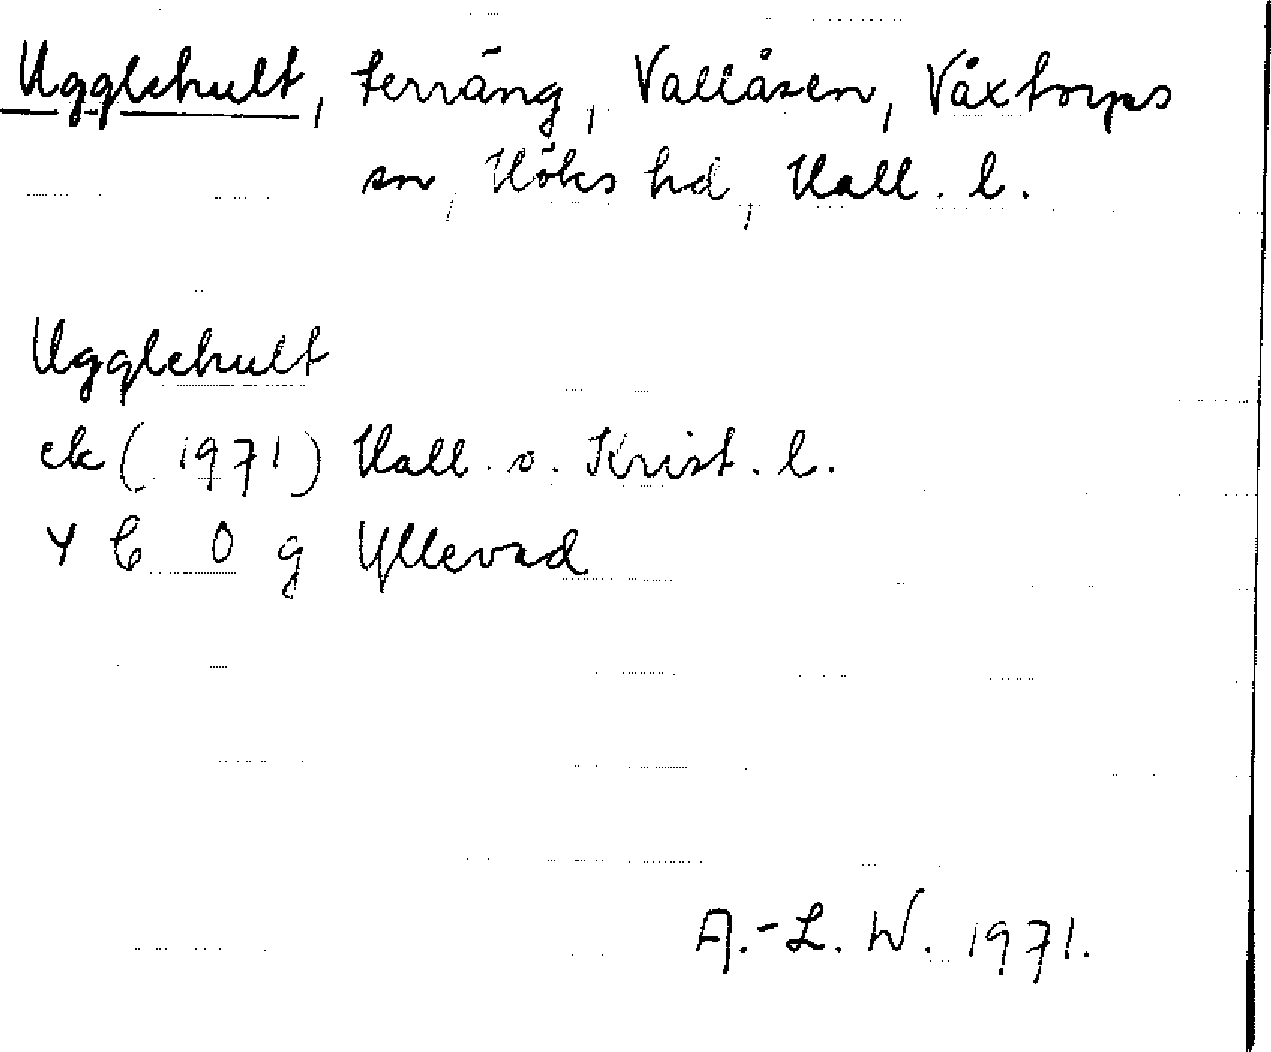 Ugglehult, terräng, Vallåsen, Våxtorps
sn, Höks hd, Hall. l.
Ugglehult
ek (1971) Hall. o. Krist. l.
4 C 0 g Yllevad
A.-L. W. 1971.